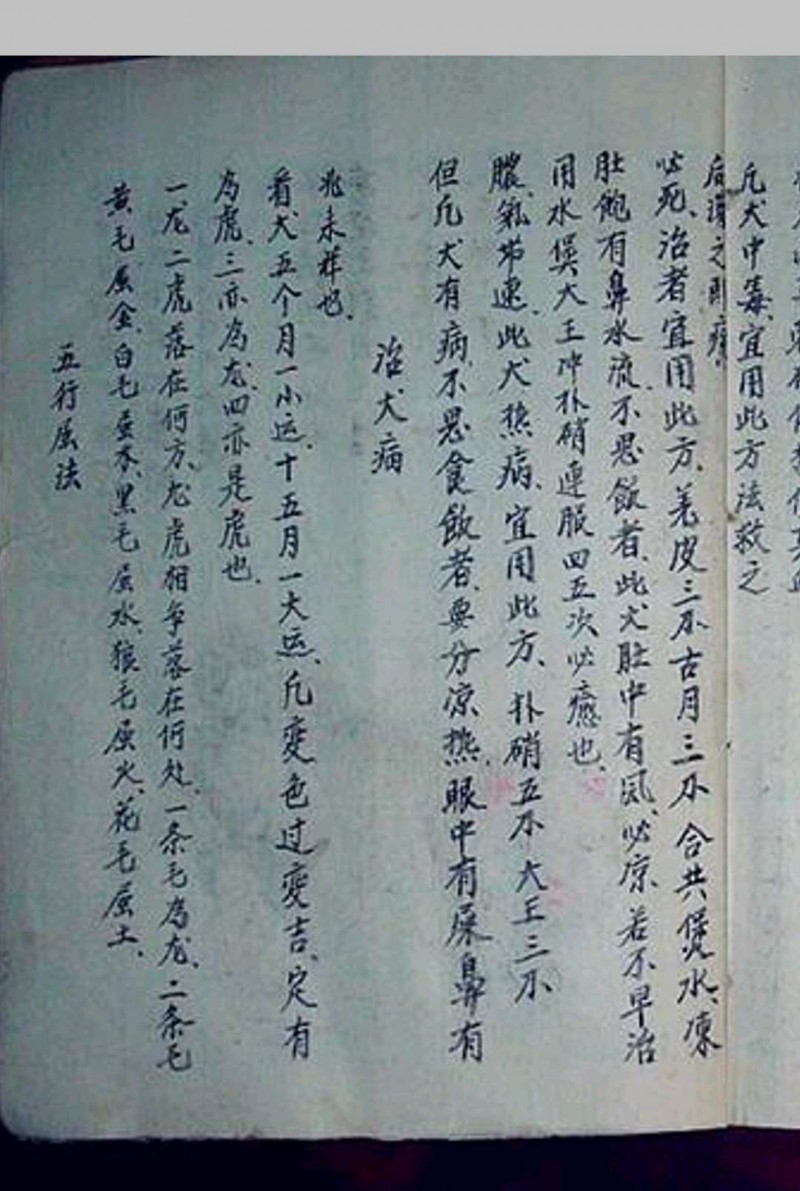 五行属法
黄毛属金、白毛属木、黑毛属水、狼毛属火、花毛属土、
一龙二虎落在何方、龙虎相争落在何处、一条毛为龙、二条毛
为虎、三亦为龙、四亦是虎也、
看犬五个月一小运、十五月一大运、凡变色过变吉、定有
兆来祥也、
治犬病
但凡犬有病、不思食飯者、要分凉热、眼中有屎鼻有
膿、氣带速、此犬热病、宜用此方、朴硝五不大王三不
用水煲大王冲朴硝连服四五次必癒也、
肚飽有鼻水流、不思飯者、此犬肚中有风、必凉、若不早治
必死、治者宜用此方、羌皮三不古月三不合共煲水、凍
后灌之即癒、
凡犬中毒、宜用此方法救之